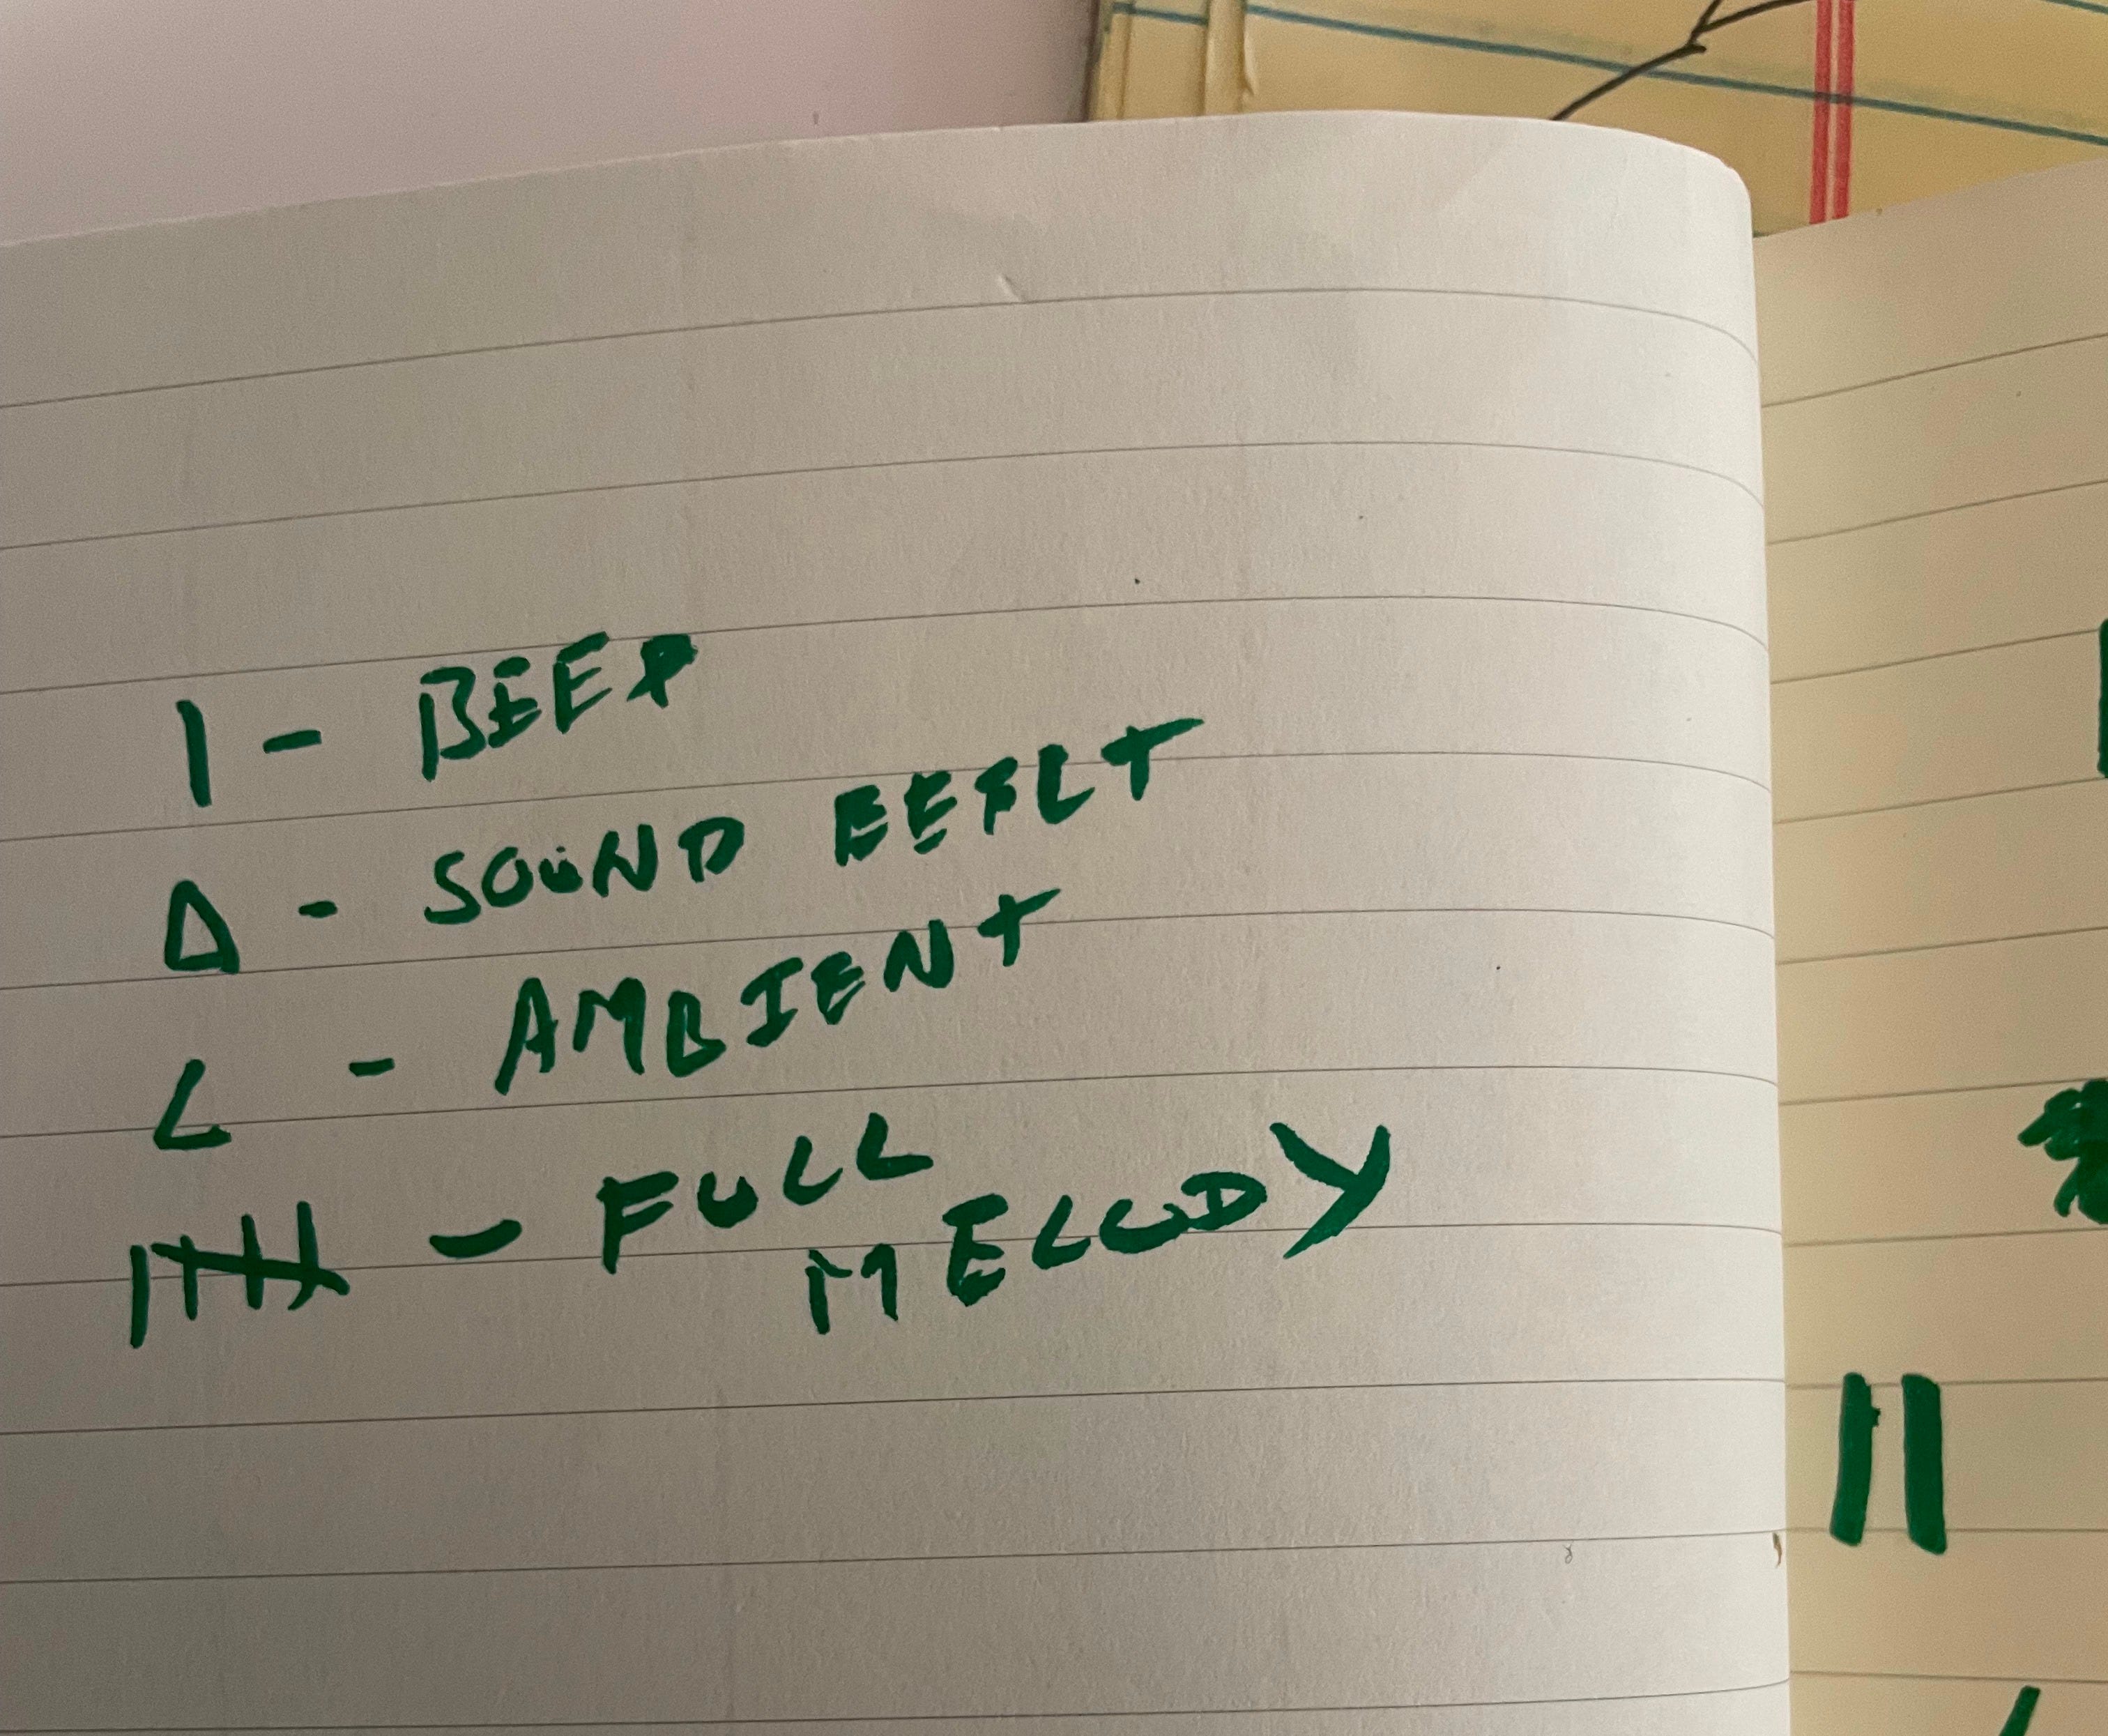 | - BEEP
Δ - SOUND EEFECT
L - AMBIENT
- FULL
MELODY
||